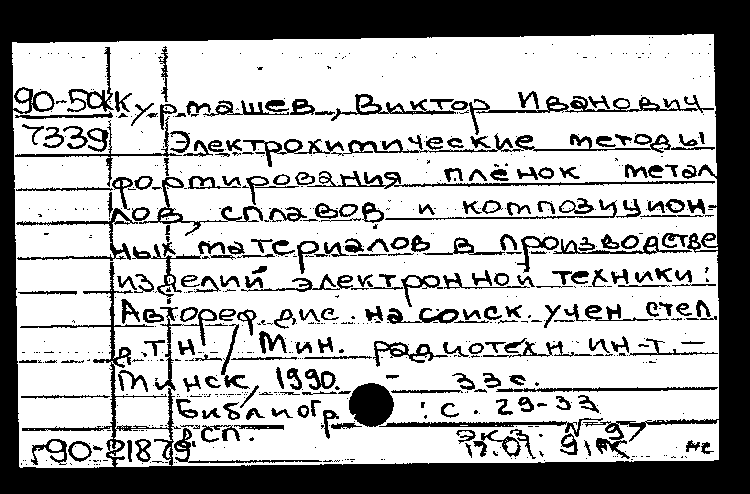 90-50КК Курташев, Виктор Иванович
7339 Электрохимические методы
формирования плёнок метал
лов, сплавов и композицион-
ных материалов в производстве
изделий электронной техники:
Автореф. дис. на соиск. учен. степ.
д.т.н. / Мин. радиотехн. ин-т. -
Минск, 1990. - 33 с.
Библиогр.: с. 29-33
В сп.
г90-21879